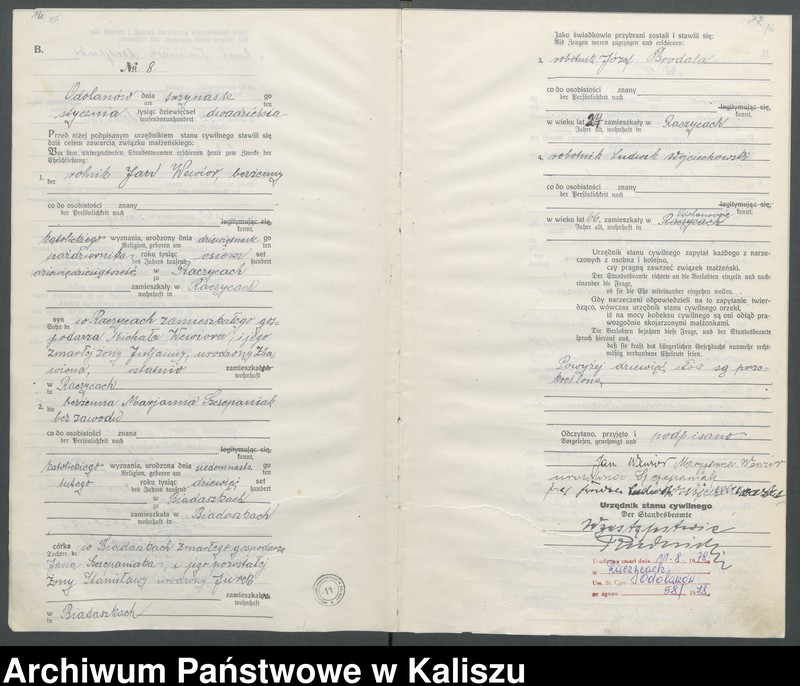 B.
No 8
Odolanów dnia trzynastego
am ten
stycznia tysiąc dziewięćset dwudziestego
tausendneunhundert
Przed niżej podpisanym urzędnikiem stanu cywilnego stawili się
dziś celem zawarcia związku małżeńskiego:
Vor dem unterzeichneten Standesbeamten erschienen heute zum Zwecke der
Eheschließung:
1. rolnik Jan Wewiór, bezżenny
der
co do osobistości znany
der Persönlichkeit nach
legitymując się,
kannt,
katolickiego wyznania, urodzony dnia dziewiętnastego
Religion, geboren am ten
października roku tysiąc osiemset
des Jahres tausend hundert
dziewięćdziesiątego w Raczycach
zu
zamieszkały w Raczycach
wohnhaft in
syn w Raczycach zamieszkałego gos-
Sohn de
podarza Michała Wewióra, i jego
zmarłej żony Julianny, urodzonej
ostatnio zamieszkałych
wohnhaft
w Raczycach
in
2. bezżenna Marjanna Szczepaniak
die
bez zawodu
co do osobistości znana
der Persönlichkeit nach
legitymując się,
kannt,
katolickiego wyznania, urodzona dnia siedemnastego
Religion, geboren am ten
lutego roku tysiąc dziewięćset
des Jahres tausend hundert
w Biadaszkach
zu
zamieszkała w Biadaszkach
wohnhaft in
córka w Biadaszkach zmarłego gospodarza
Tochter de
Jana Szczepaniaka, i jego pozostałej
żony Stanisławy urodzonej Jurek
zamieszkałych
wohnhaft
w Biadaszkach
in
Jako świadkowie przybrani zostali i stawili się:
Als Zeugen waren zugezogen und erschienen:
3. robotnik Józef Brodala
co do osobistości znany
der Persönlichkeit nach
legitymując się,
kannt,
w wieku lat 24 zamieszkały w Raczycach
Jahre alt, wohnhaft in
4. robotnik Ludwik Wojciechowski
co do osobistości znany
der Persönlichkeit nach
legitymując się,
kannt,
Odolanowie
w wieku lat 66, zamieszkały w Raczycach
Jahre alt, wohnhaft in
Urzędnik stanu cywilnego zapytał każdego z narze-
czonych z osobna i kolejno,
czy pragną zawrzeć związek małżeński.
Der Standesbeamte richtete an die Verlobten einzeln und nach-
einander die Frage,
ob sie die Ehe miteinander eingehen wollen.
Gdy narzeczeni odpowiedzieli na to zapytanie twier-
dząco, wówczas urzędnik stanu cywilnego orzekł,
iż na mocy kodeksu cywilnego są oni obżąd pra-
wozgodnie skojarzonymi małżonkami.
Die Verlobten bejahten diese Frage, und der Standesbeamte
sprach hierauf aus,
daß sie kraft des bürgerlichen Gesetzbuchs nunmehr recht-
mäßig verbundene Eheleute seien.
Powyżej dziewięć słów są prze-
kreślone
Odczytano, przyjęto i podpisano
Vorgelesen, genehmigt und
Jan Wewiór Maryjanna Wewiór
urodzona Szczepaniak
Urzędnik stanu cywilnego
Der Standesbeamte
W zastępstwie
zmarł dnia 11.8.1978
w Raczycach
Odolanów
58/1978
Archiwum Państwowe w Kaliszu